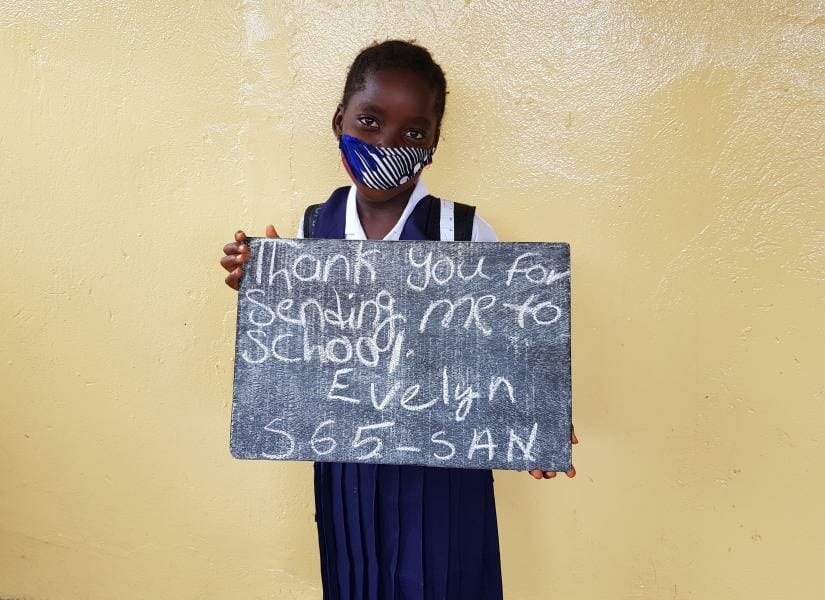 Thank you for
Sending me to
School.
Evelyn
S65-SAN